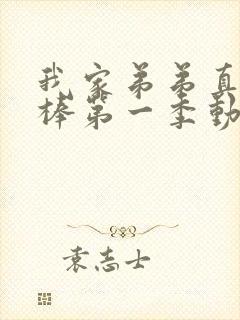 我家弟弟真
棒第一季動
袁志士